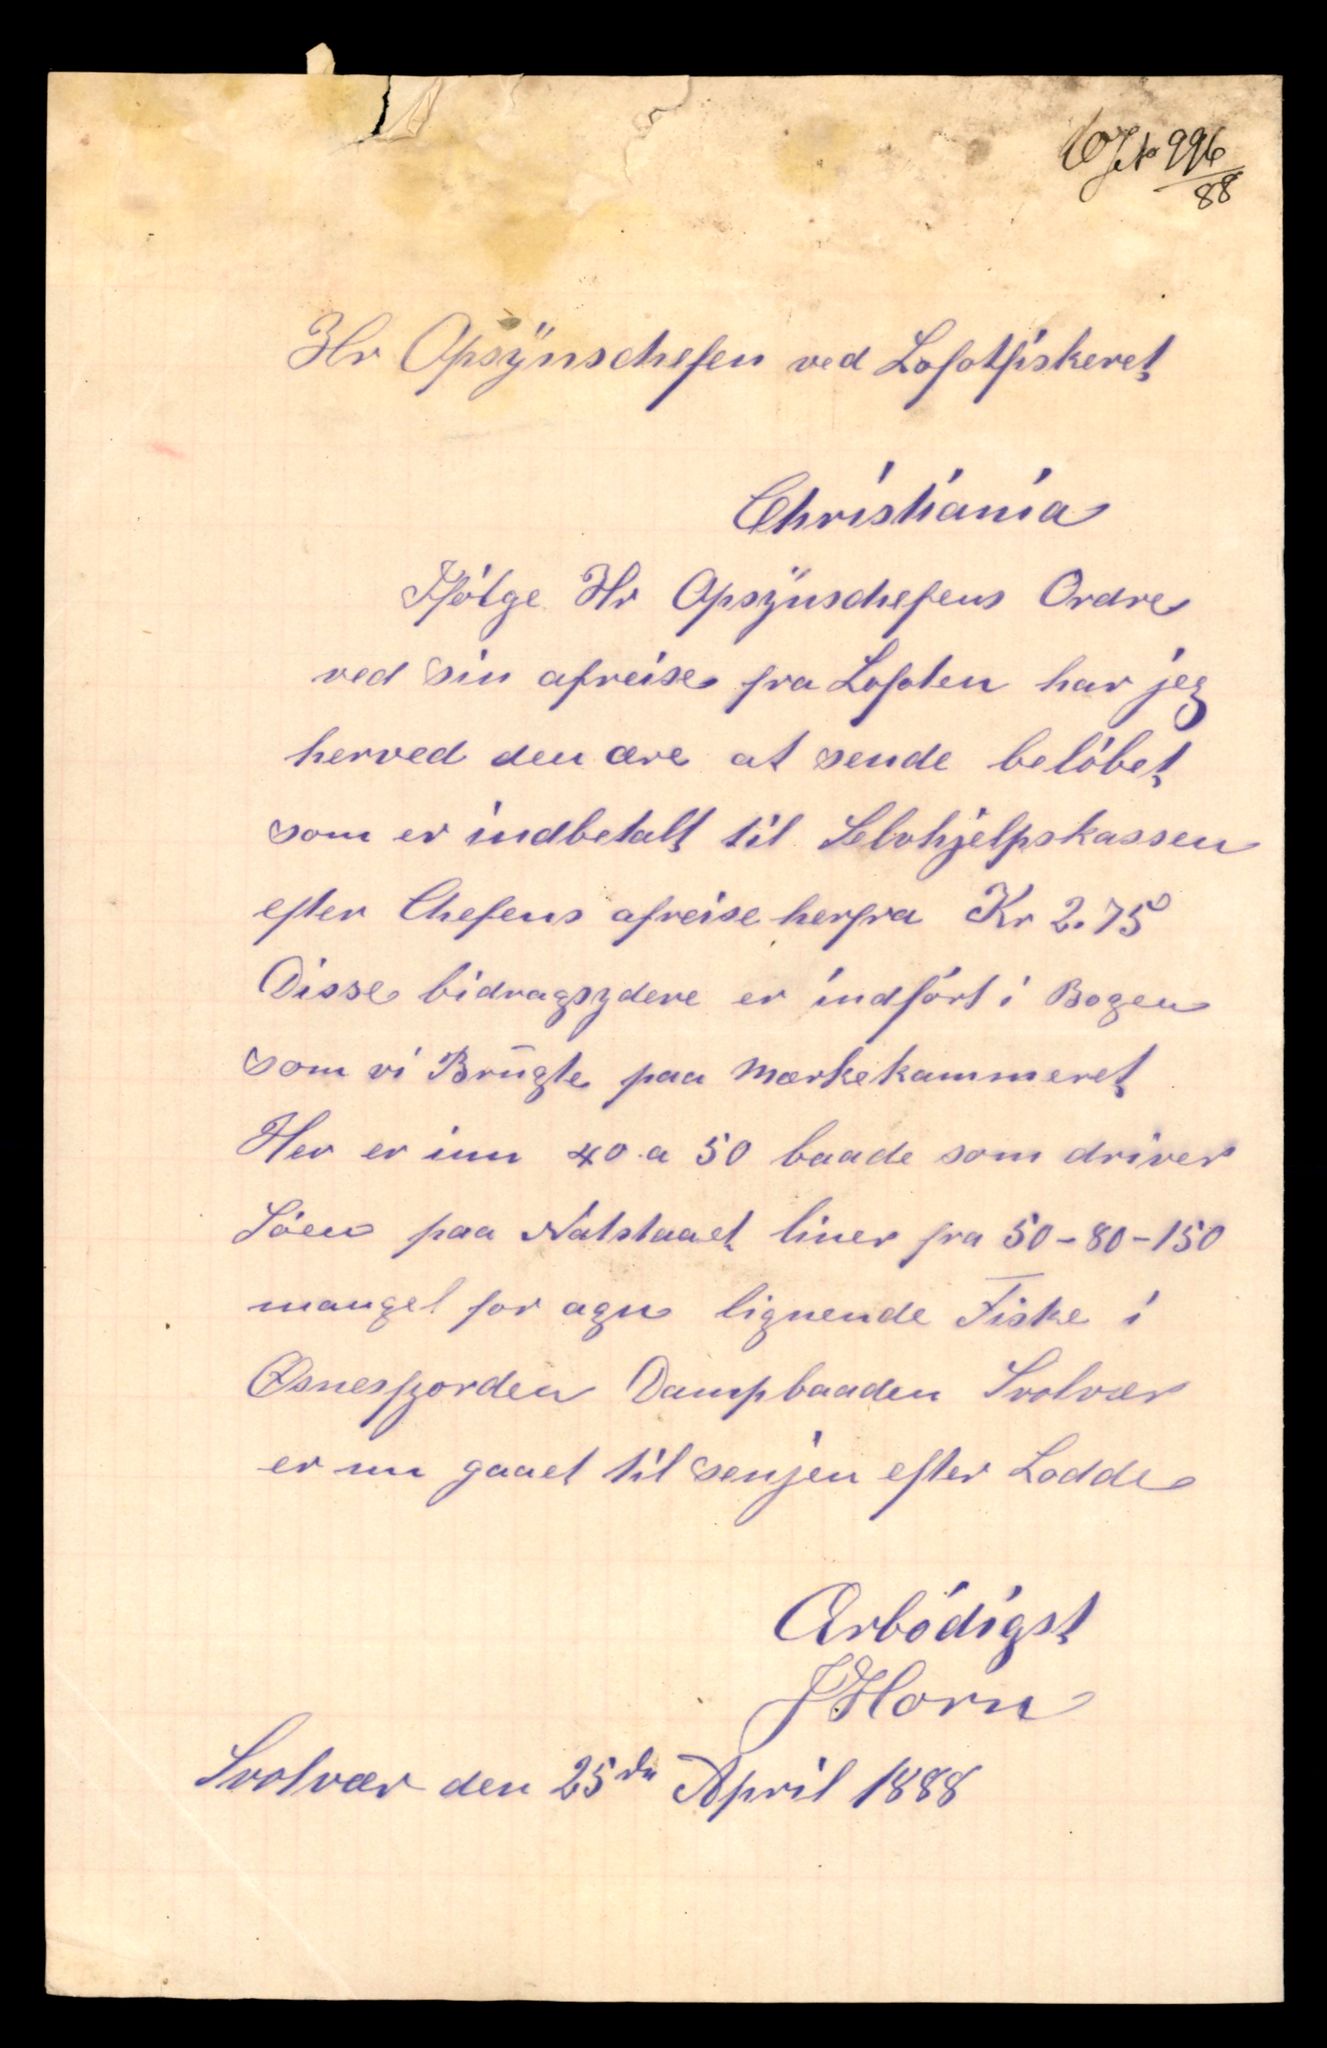 No 996
88
Hr Opsÿnschefen ved Lofotfiskeret
Christiania
Ifólge Hr Opsÿnschefens Ordre
ved sin afreise fra Lofoten har jeg
herved den ære at sende belóbet
som er indbetalt til Selvhjelpskassen
efter Chefens afreise herfra Kr 2.75
Disse bidragsydere er indfórt i Bogen
som vi Brugte paa Mærkekammeret
Her er inu 40 a 50 baade som driver
Sóen paa Natstaaet liner fra 50-80-150
mangel for agn lignende Fiske i
Øsnesfjorden Dampbaaden Svolvær
er nu gaaet til senjen efter Lodde
Ærbódigst
J Horn
Svolvær den 25de April 1888